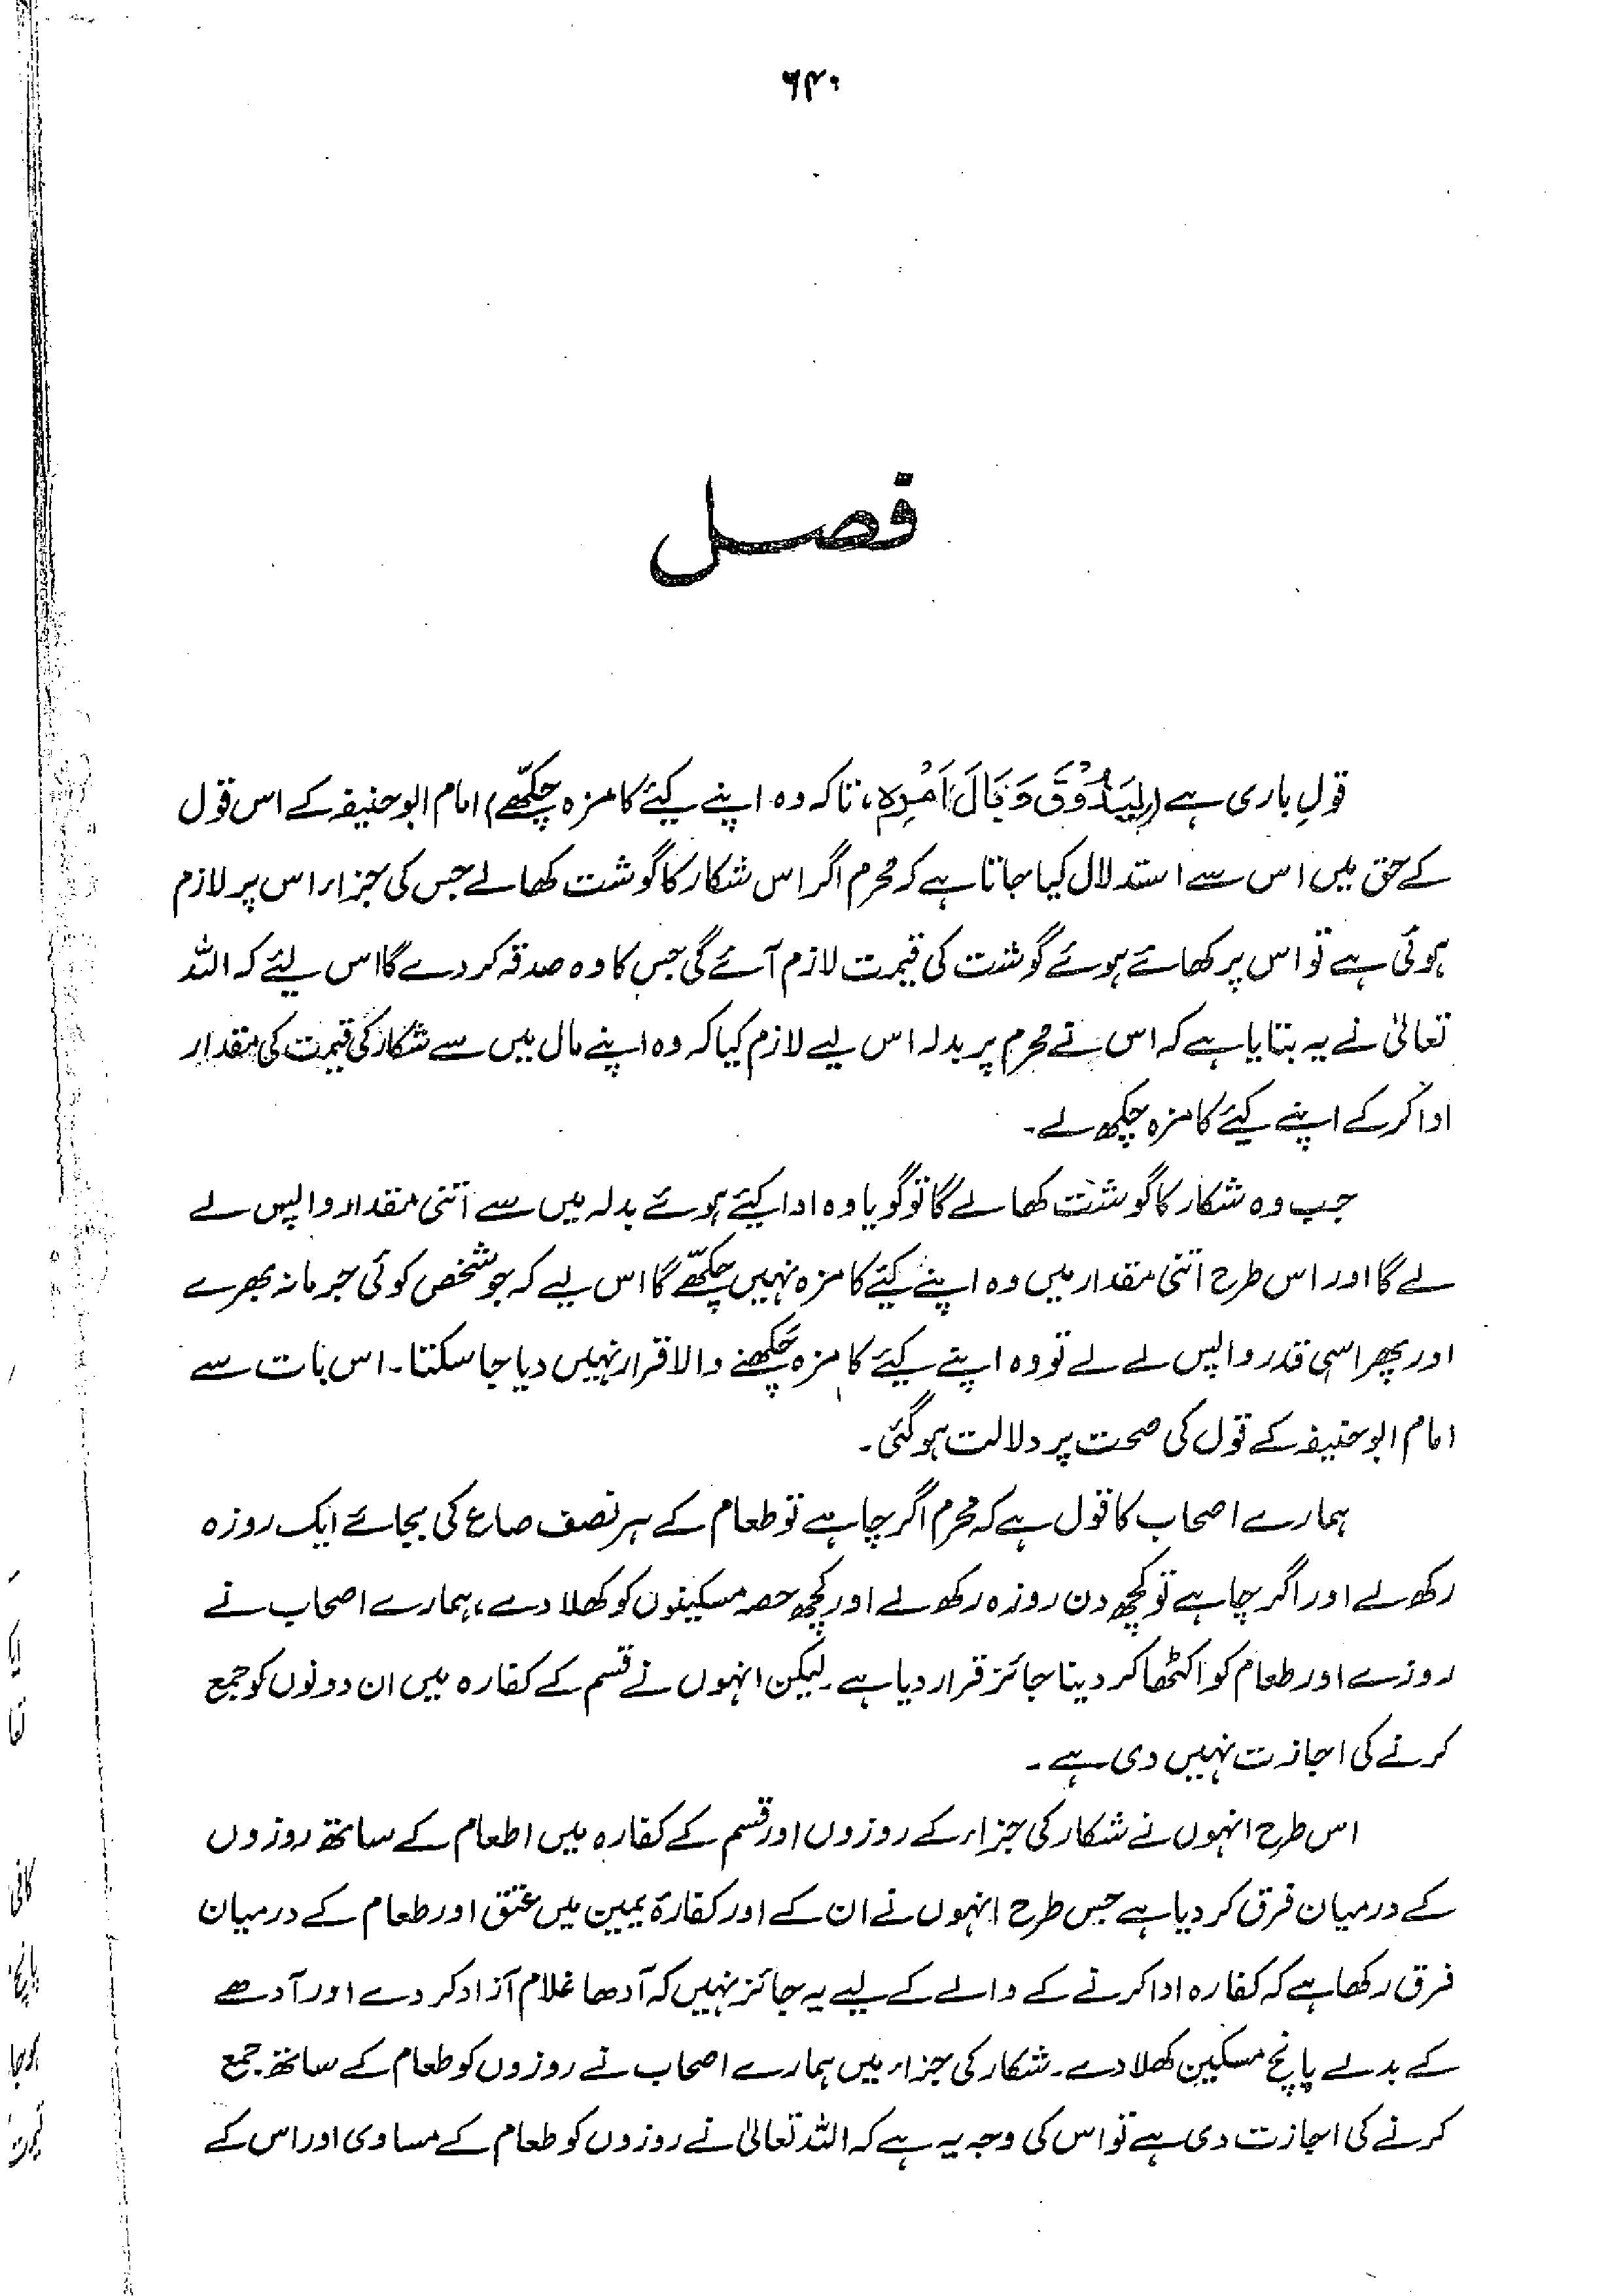 ۶۴۰
فصل
قولِ باری ہے (لِيَذُوْقَ وَبَالَ اَمْرِهٖ، تاکہ وہ اپنے کیئے کا مزہ چکھّے) امام ابو حنیفہ کے اس قول
کے حق میں اس سے استدلال کیا جاتا ہے کہ محرم اگر اس شکار کا گوشت کھا لے جس کی جزاء اس پر لازم
ہوئی ہے تو اس پر کھائے ہوئے گوشت کی قیمت لازم آئے گی جس کا وہ صدقہ کر دے گا اس لیئے کہ اللہ
تعالیٰ نے یہ بتایا ہے کہ اس نے محرم پر بدلہ اس لیے لازم کیا کہ وہ اپنے مال میں سے شکار کی قیمت کی مقدار
ادا کر کے اپنے کیئے کا مزہ چکھ لے۔
جب وہ شکار کا گوشت کھا لے گا تو گویا وہ ادا کیئے ہوئے بدلہ میں سے اتنی مقدار واپس لے
لے گا اور اس طرح اتنی مقدار میں وہ اپنے کیئے کا مزہ نہیں چکھّے گا اس لیے کہ جو شخص کوئی جرمانہ بھرے
اور پھر اسی قدر واپس لے لے تو وہ اپنے کیئے کا مزہ چکھنے والا قرار نہیں دیا جا سکتا۔ اس بات سے
امام ابو حنیفہ کے قول کی صحت پر دلالت ہو گئی۔
ہمارے اصحاب کا قول ہے کہ محرم اگر چاہے تو طعام کے ہر نصف صاع کی بجائے ایک روزہ
رکھ لے اور اگر چاہے تو کچھ دن روزہ رکھ لے اور کچھ حصہ مسکینوں کو کھلا دے، ہمارے اصحاب نے
روزے اور طعام کو اکٹھا کر دینا جائز قرار دیا ہے۔ لیکن انہوں نے قسم کے کفارہ میں ان دونوں کو جمع
کرنے کی اجازت نہیں دی ہے۔
اس طرح انہوں نے شکار کی جزاء کے روزوں اور قسم کے کفارہ میں اطعام کے ساتھ روزوں
کے درمیان فرق کر دیا ہے جس طرح انہوں نے ان کے اور کفارۂ یمین میں عتق اور طعام کے درمیان
فرق رکھا ہے کہ کفارہ ادا کرنے کے والے کے لیے یہ جائز نہیں کہ آدھا غلام آزاد کر دے اور آدھے
کے بدلے پانچ مسکین کھلا دے۔ شکار کی جزاء میں ہمارے اصحاب نے روزوں کو طعام کے ساتھ جمع
کرنے کی اجازت دی ہے تو اس کی وجہ یہ ہے کہ اللہ تعالیٰ نے روزوں کو طعام کے مساوی اور اس کے